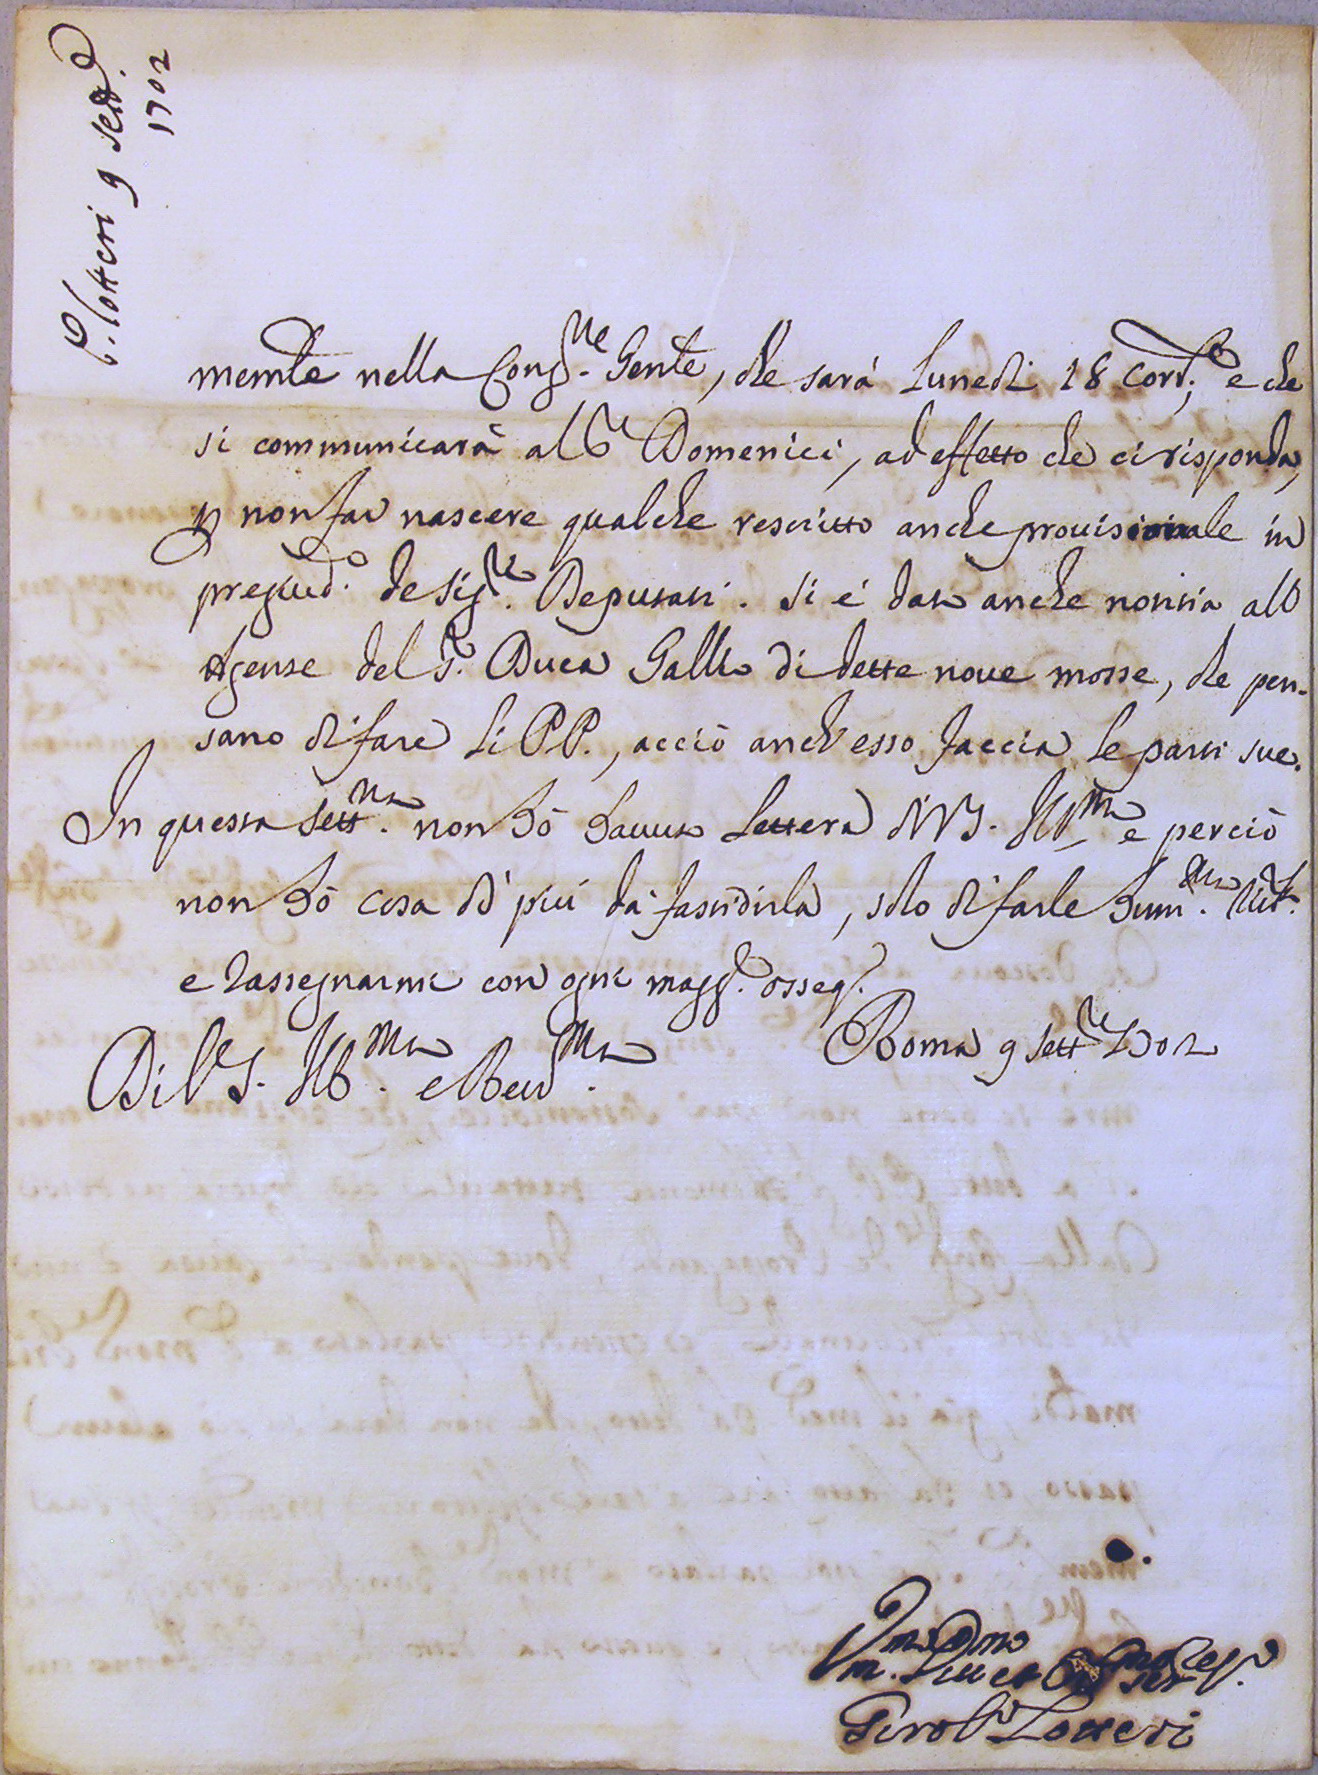 P. Lotteri 9 sett.e
1702
mente nella Cong.ne Gente, che sarà Lunedì 18 Corr.te, e che
si communicarà al Sr Domenici, ad effetto che ci risponda,
p non far nascere qualche rescritto anche provisionale in
pregiud.o de Sig.ri Deputati. Si é dato anche notitia all'
Agente del S.r Duca Gallio di dette nove mosse, che pen-
sano di fare li PP., acciò anch'esso faccia le parti sue.
In questa sett.na non hò havuto Lettera di V.S. Ill.ma e perciò
non hò cosa di piú da fastidirla, solo di farle hum.ma
e rassegnarmi con ogni magg.r osseq.o
Di V.S. Ill.ma e Rev.ma Roma 9 sett.e 1702
Girol.o Lotteri